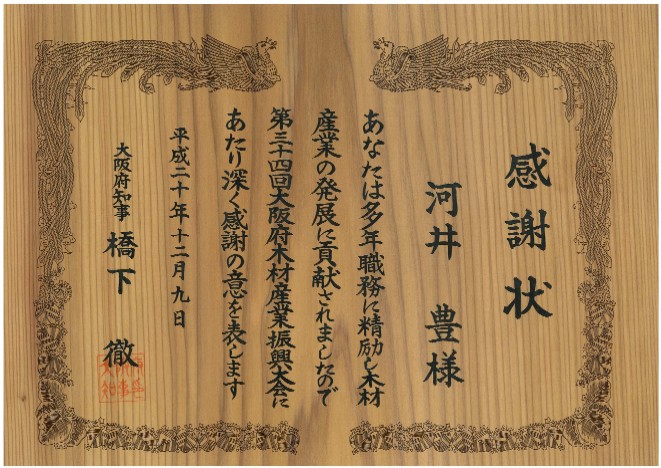 感謝状
河井 豊様
あなたは多年職務に精励し木材
産業の発展に貢献されましたので
第三十四回大阪府木材産業振興大会に
あたり深く感謝の意を表します
平成二十年十二月九日
大阪府知事 橋下 徹